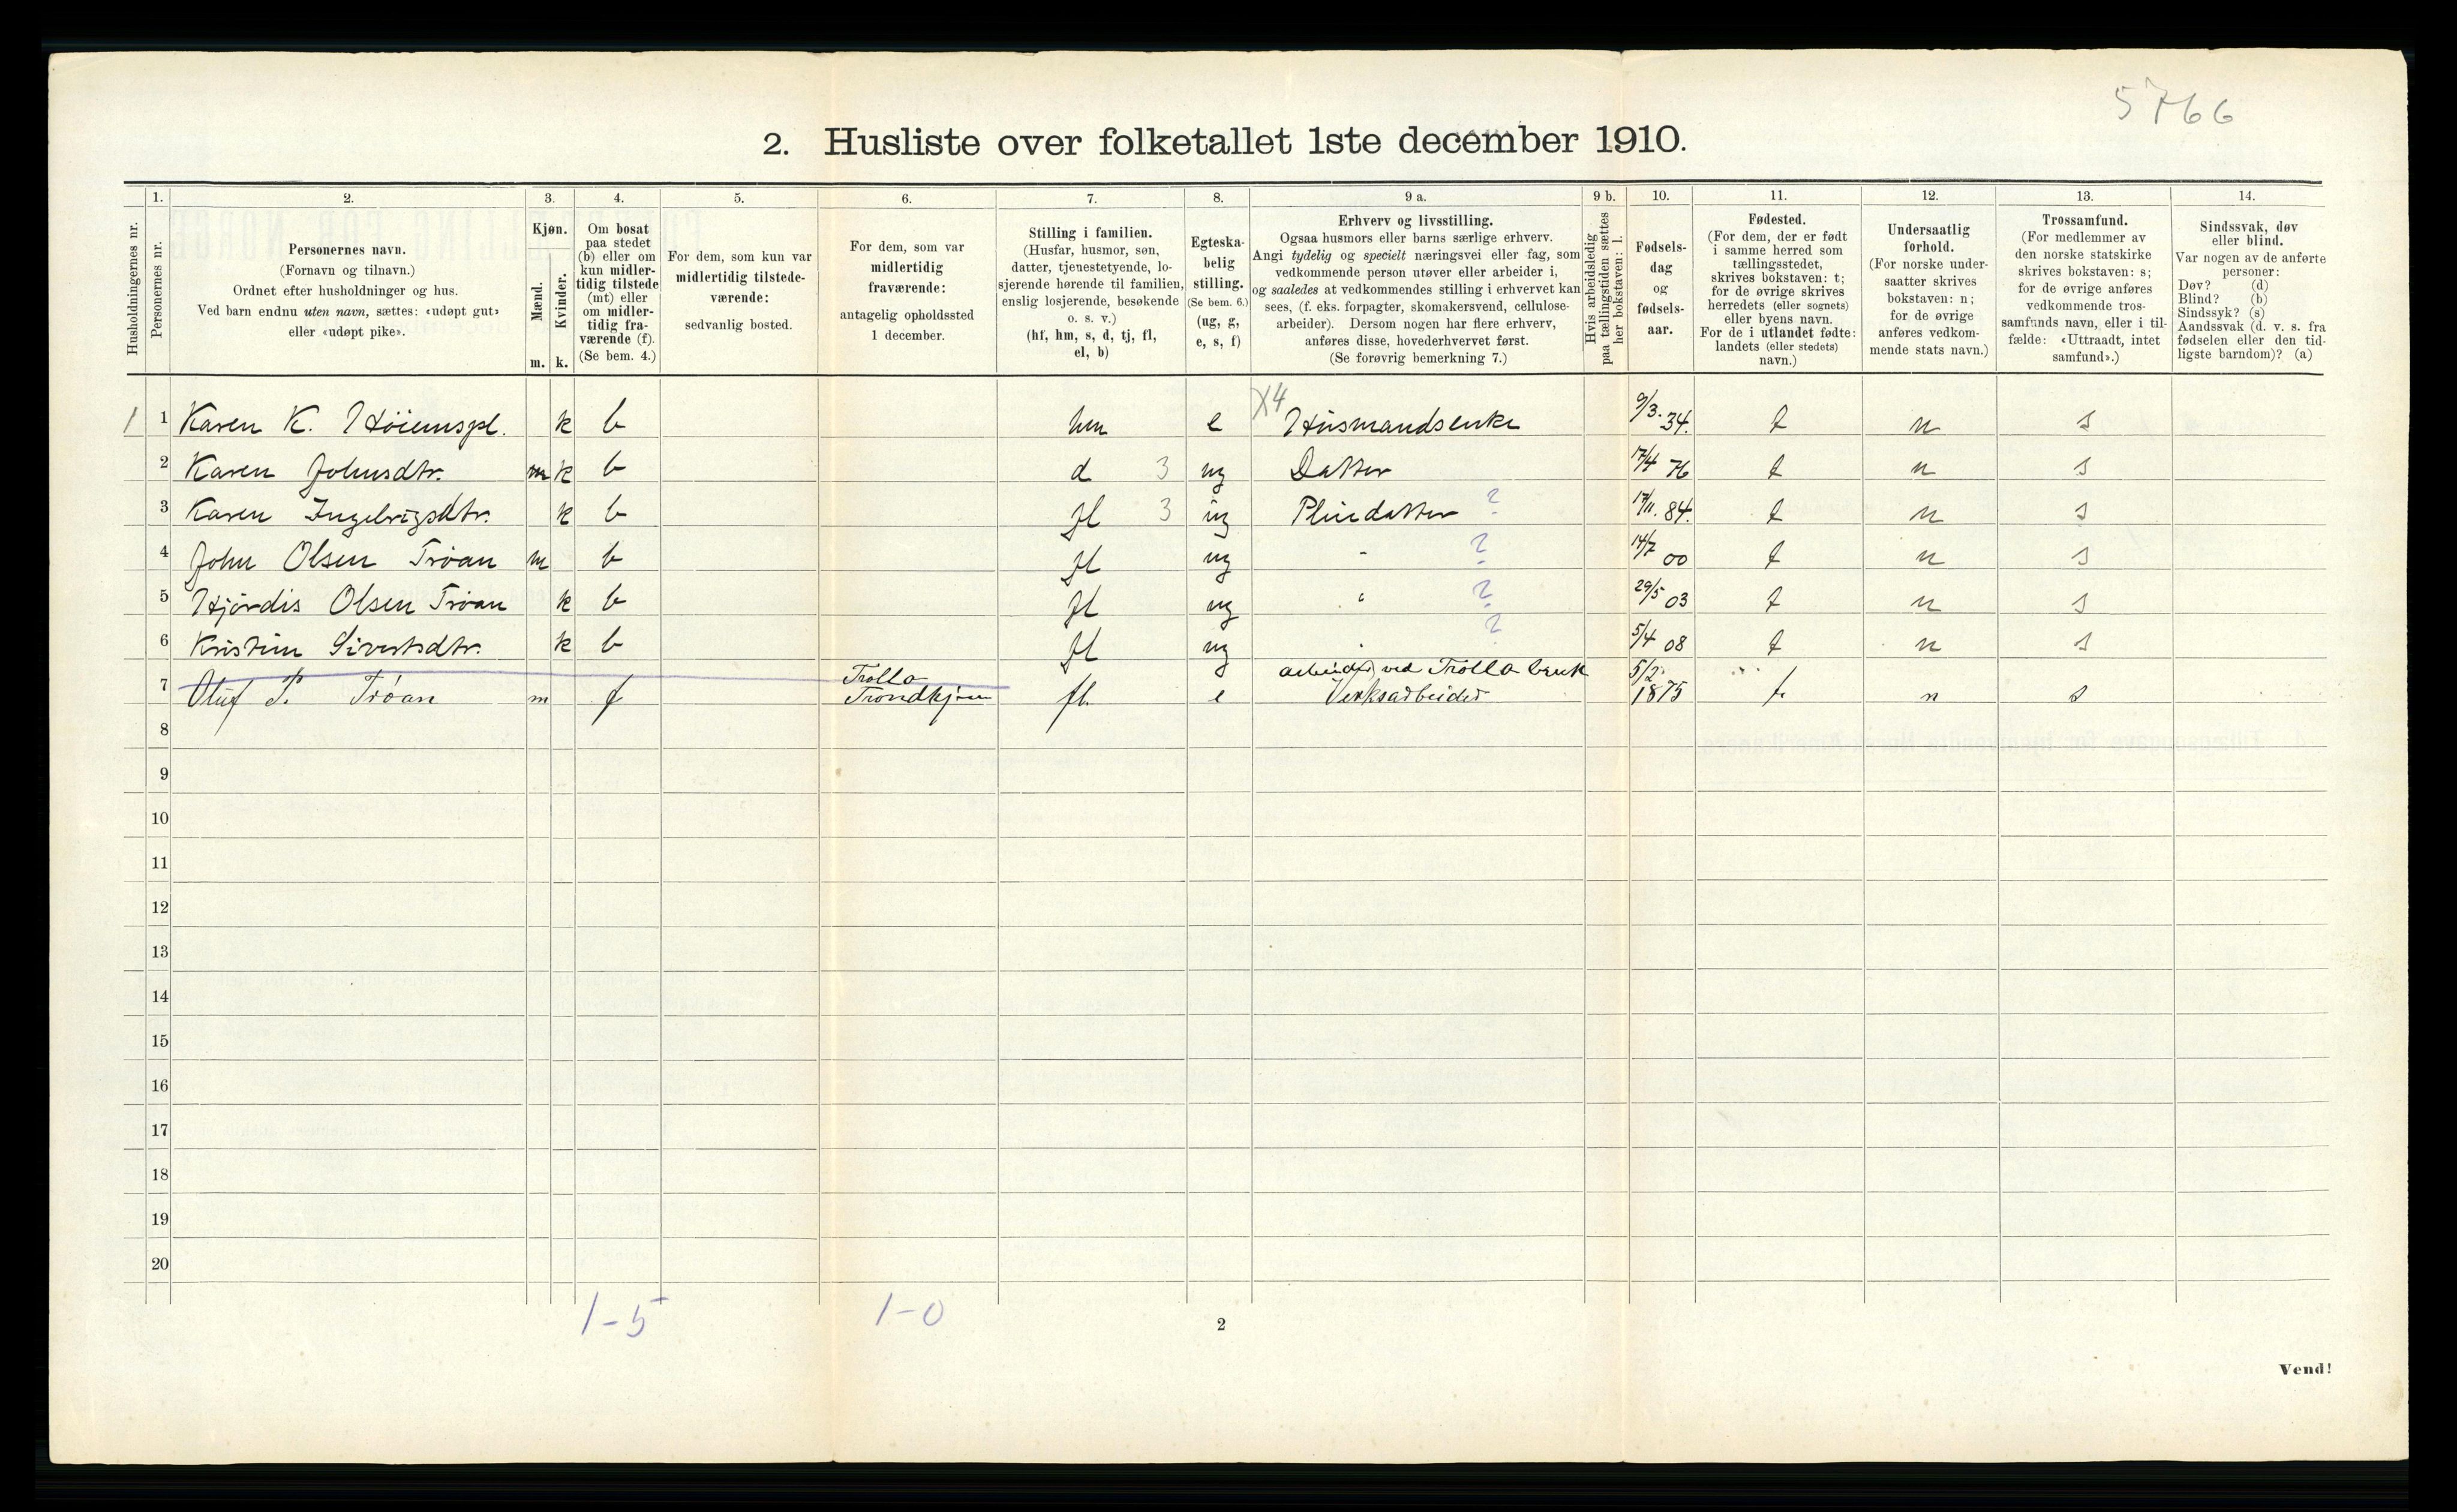 5766
2. Husliste over folketallet 1ste december 1910.
Husholdningernes nr.
1. Personernes nr.
2. Personernes navn.
(Fornavn og tilnavn.)
Ordnet efter husholdninger og hus.
Ved barn endnu uten navn, sættes: «udøpt gut»
eller «udøpt pike».
3. Kjøn.
Mænd. m.
Kvinder. k.
4. Om bosat
paa stedet
(b) eller om
kun midler-
tidig tilstede
(mt) eller
om midler-
tidig fra-
værende (f).
(Se bem. 4.)
5. For dem, som kun var
midlertidig tilstede-
værende:
sedvanlig bosted.
6. For dem, som var
midlertidig
fraværende:
antagelig opholdssted
1 december.
7. Stilling i familien.
(Husfar, husmor, søn,
datter, tjenestetyende, lo-
sjerende hørende til familien,
enslig losjerende, besøkende
o. s. v.)
(hf, hm, s, d, tj, fl,
el, b)
8. Egteska-
belig
stilling.
(Se bem. 6.)
(ug, g,
e, s, f)
9 a. Erhverv og livsstilling.
Ogsaa husmors eller barns særlige erhverv.
Angi tydelig og specielt næringsvei eller fag, som
vedkommende person utøver eller arbeider i,
og saaledes at vedkommendes stilling i erhvervet kan
sees, (f. eks. forpagter, skomakersvend, cellulose-
arbeider). Dersom nogen har flere erhverv,
anføres disse, hovederhvervet først.
(Se forøvrig bemerkning 7.)
9 b. Hvis arbeidsledig
paa tællingstiden sættes
her bokstaven: l.
10. Fødsels-
dag
og
fødsels-
aar.
11. Fødested.
(For dem, der er født
i samme herred som
tællingsstedet,
skrives bokstaven: t;
for de øvrige skrives
herredets (eller sognets)
eller byens navn.
For de i utlandet fødte:
landets (eller stedets)
navn.)
12. Undersaatlig
forhold.
(For norske under-
saatter skrives
bokstaven: n;
for de øvrige
anføres vedkom-
mende stats navn.)
13. Trossamfund.
(For medlemmer av
den norske statskirke
skrives bokstaven: s;
for de øvrige anføres
vedkommende tros-
samfunds navn, eller i til-
fælde: «Uttraadt, intet
samfund».)
14. Sindssvak, døv
eller blind.
Var nogen av de anførte
personer:
Døv? (d)
Blind? (b)
Sindssyk? (s)
Aandssvak (d. v. s. fra
fødselen eller den tid-
ligste barndom)? (a)
1 1 Karen K. Höiemspl. k b hm e X4 Húsmandsenke 9/3. 34. t n s
2 Karen Johnsdtr. m k b d 3 ug Datter 17/4 76 t n s
3 Karen Ingebrigsdtr. k b fl 3 ug Pleiedatter ? 17/11. 84. t n s
4 John Olsen Tröan m b fl ug " ? 14/7 00 t n s
5 Hjördis Olsen Tröan k b fl ug " ? 29/5 03 t n s
6 Kristin Sivertsdtr. k b fl ug " ? 5/4 08 t n s
7 Oluf P. Trøan m f Trolla Trondhjem fl. e arbeider ved Trolla bruk Verksarbeider 5/2 1875 t n s
8
9
10
11
12
13
14
15
16
17
18
19
20
1-5 1-0
2
Vend!